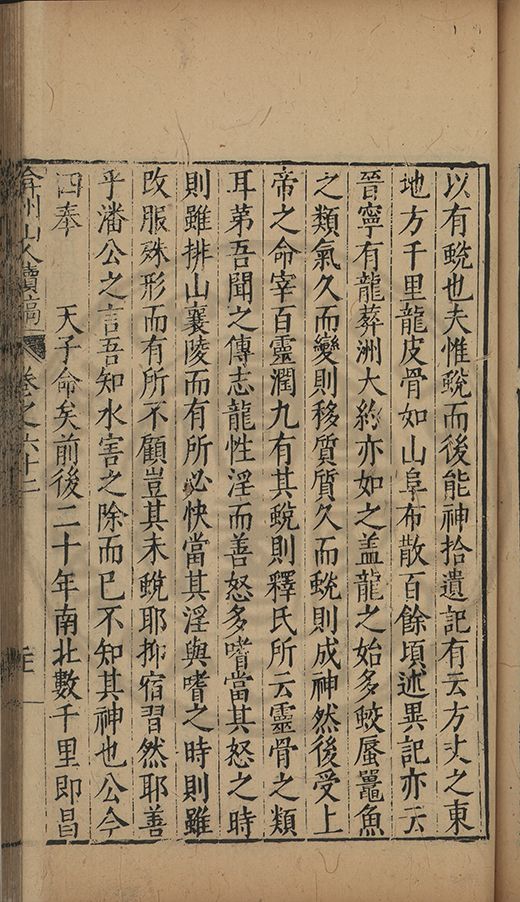 以有蛻也夫惟蛻而後能神拾遺記有云方丈之東
地方千里龍皮骨如山阜布散百餘頃述異記亦云
晉寧有龍葬洲大約亦如之盖龍之始多蛟蜃鼉魚
之類氣久而變則移質質久而蛻則成神然後受上
帝之命宰百靈潤九有其蛻則釋氏所云靈骨之類
耳苐吾聞之傳志龍性淫而善怒多嗜當其怒之時
則雖排山襄陵而有所必快當其淫與嗜之時則雖
改服殊形而有所不顧豈其未蛻耶抑宿習然耶善
乎潘公之言吾知水害之除而已不知其神也公今
四奉　天子命矣前後二十年南北數千里即昌
弇州山人續稿　卷之六十二